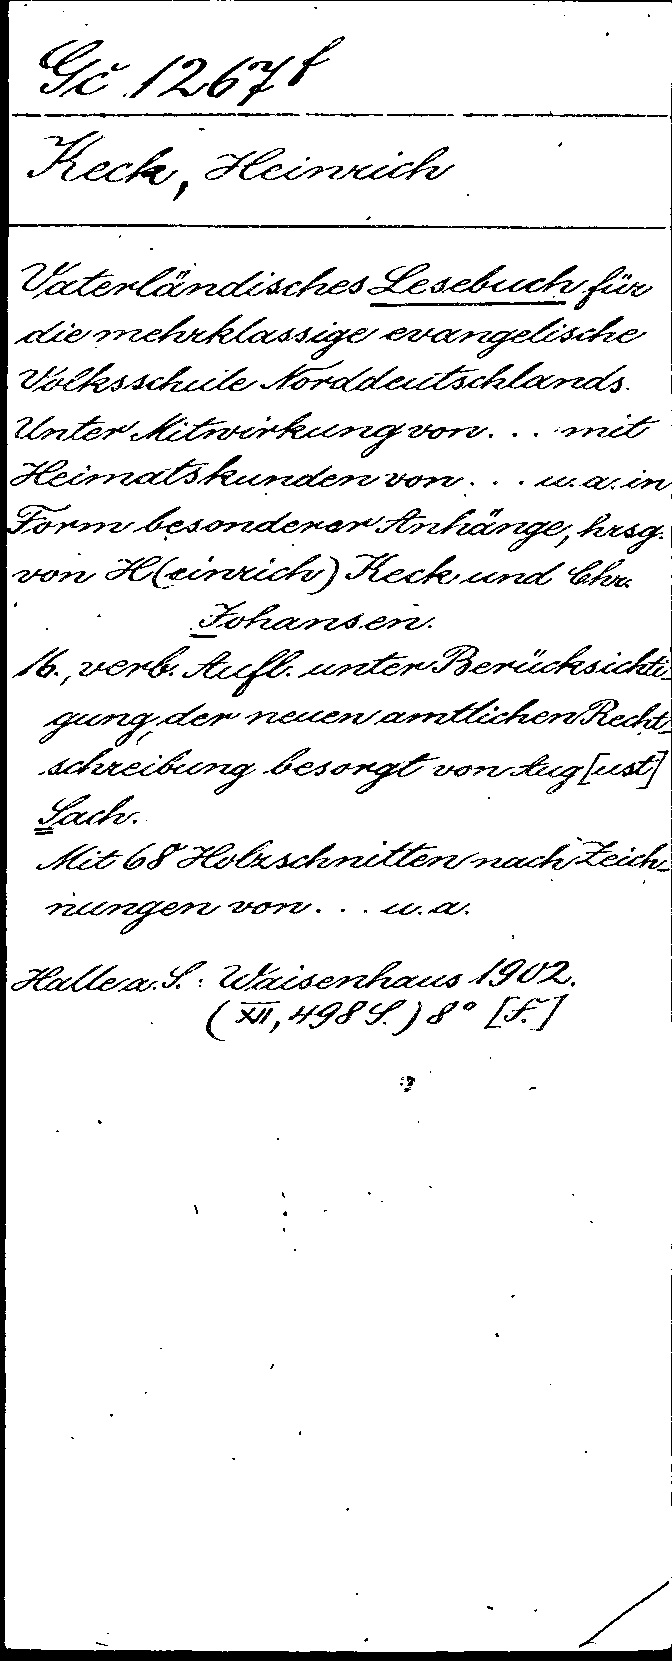 Gč 1267f
Keck, Heinrich
Vaterländisches Lesebuch für
die mehrklassige evangelische
Volksschule Norddeutschlands.
Unter Mitwirkung von... mit
Heimatskunden von... u. a. in
Form besonderer Anhänge, hrsg.
von H(einrich) Keck und Chr.
Johansen.
16., verb. Aufl. unter Berücksichti-
gung der neuen amtlichen Recht-
schreibung besorgt von Aug[ust]
Sach.
Mit 68 Holzschnitten nach Zeich-
nungen von... u. a.
Halle a. S.: Waisenhaus 1902.
(XII, 498 S.) 8° [F.]